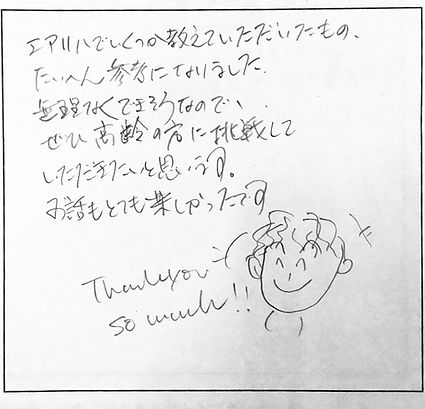 エアリハでいくつか教えていただいたもの、
たいへん参考になりました。
無理なくできそうなので、
ぜひ高齢の方に挑戦して
いただきたいと思います。
お話もとても楽しかったです
Thank you
so much!!